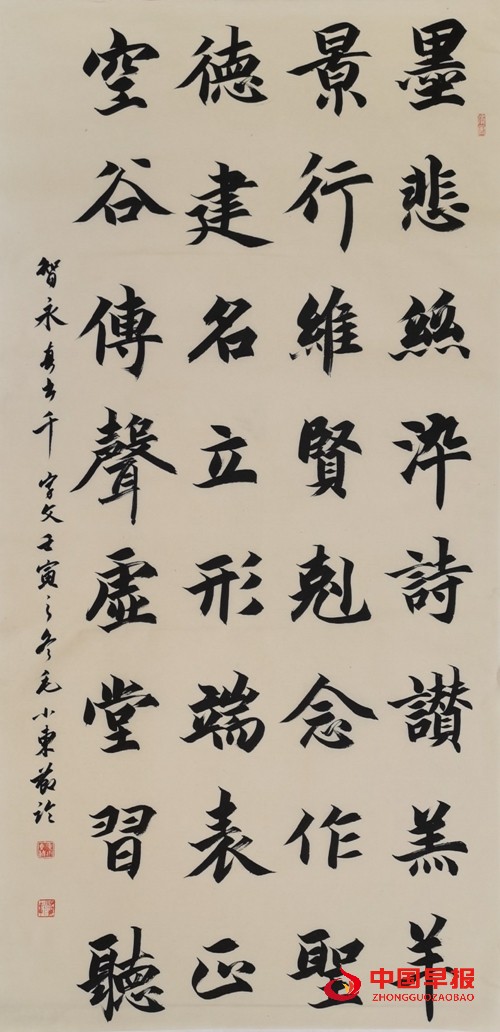 墨悲絲染詩讚羔羊
景行維賢剋念作聖
德建名立形端表正
空谷傳聲虛堂習聽
智永真书千字文壬寅之冬毛小東敬临
中国早报
ZHONGGUOZAOBAO